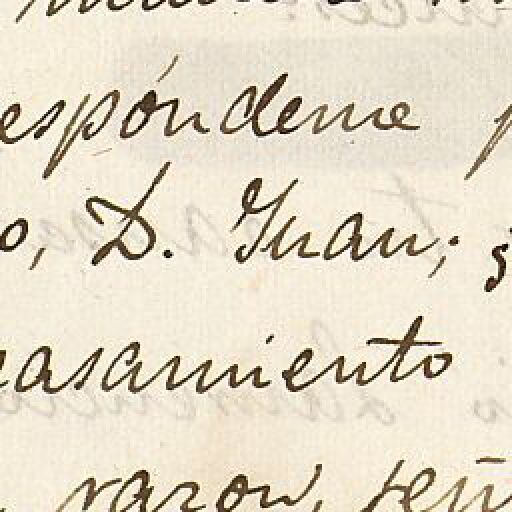 espóndeme
o, D. Juan;
casamiento
razon, señ